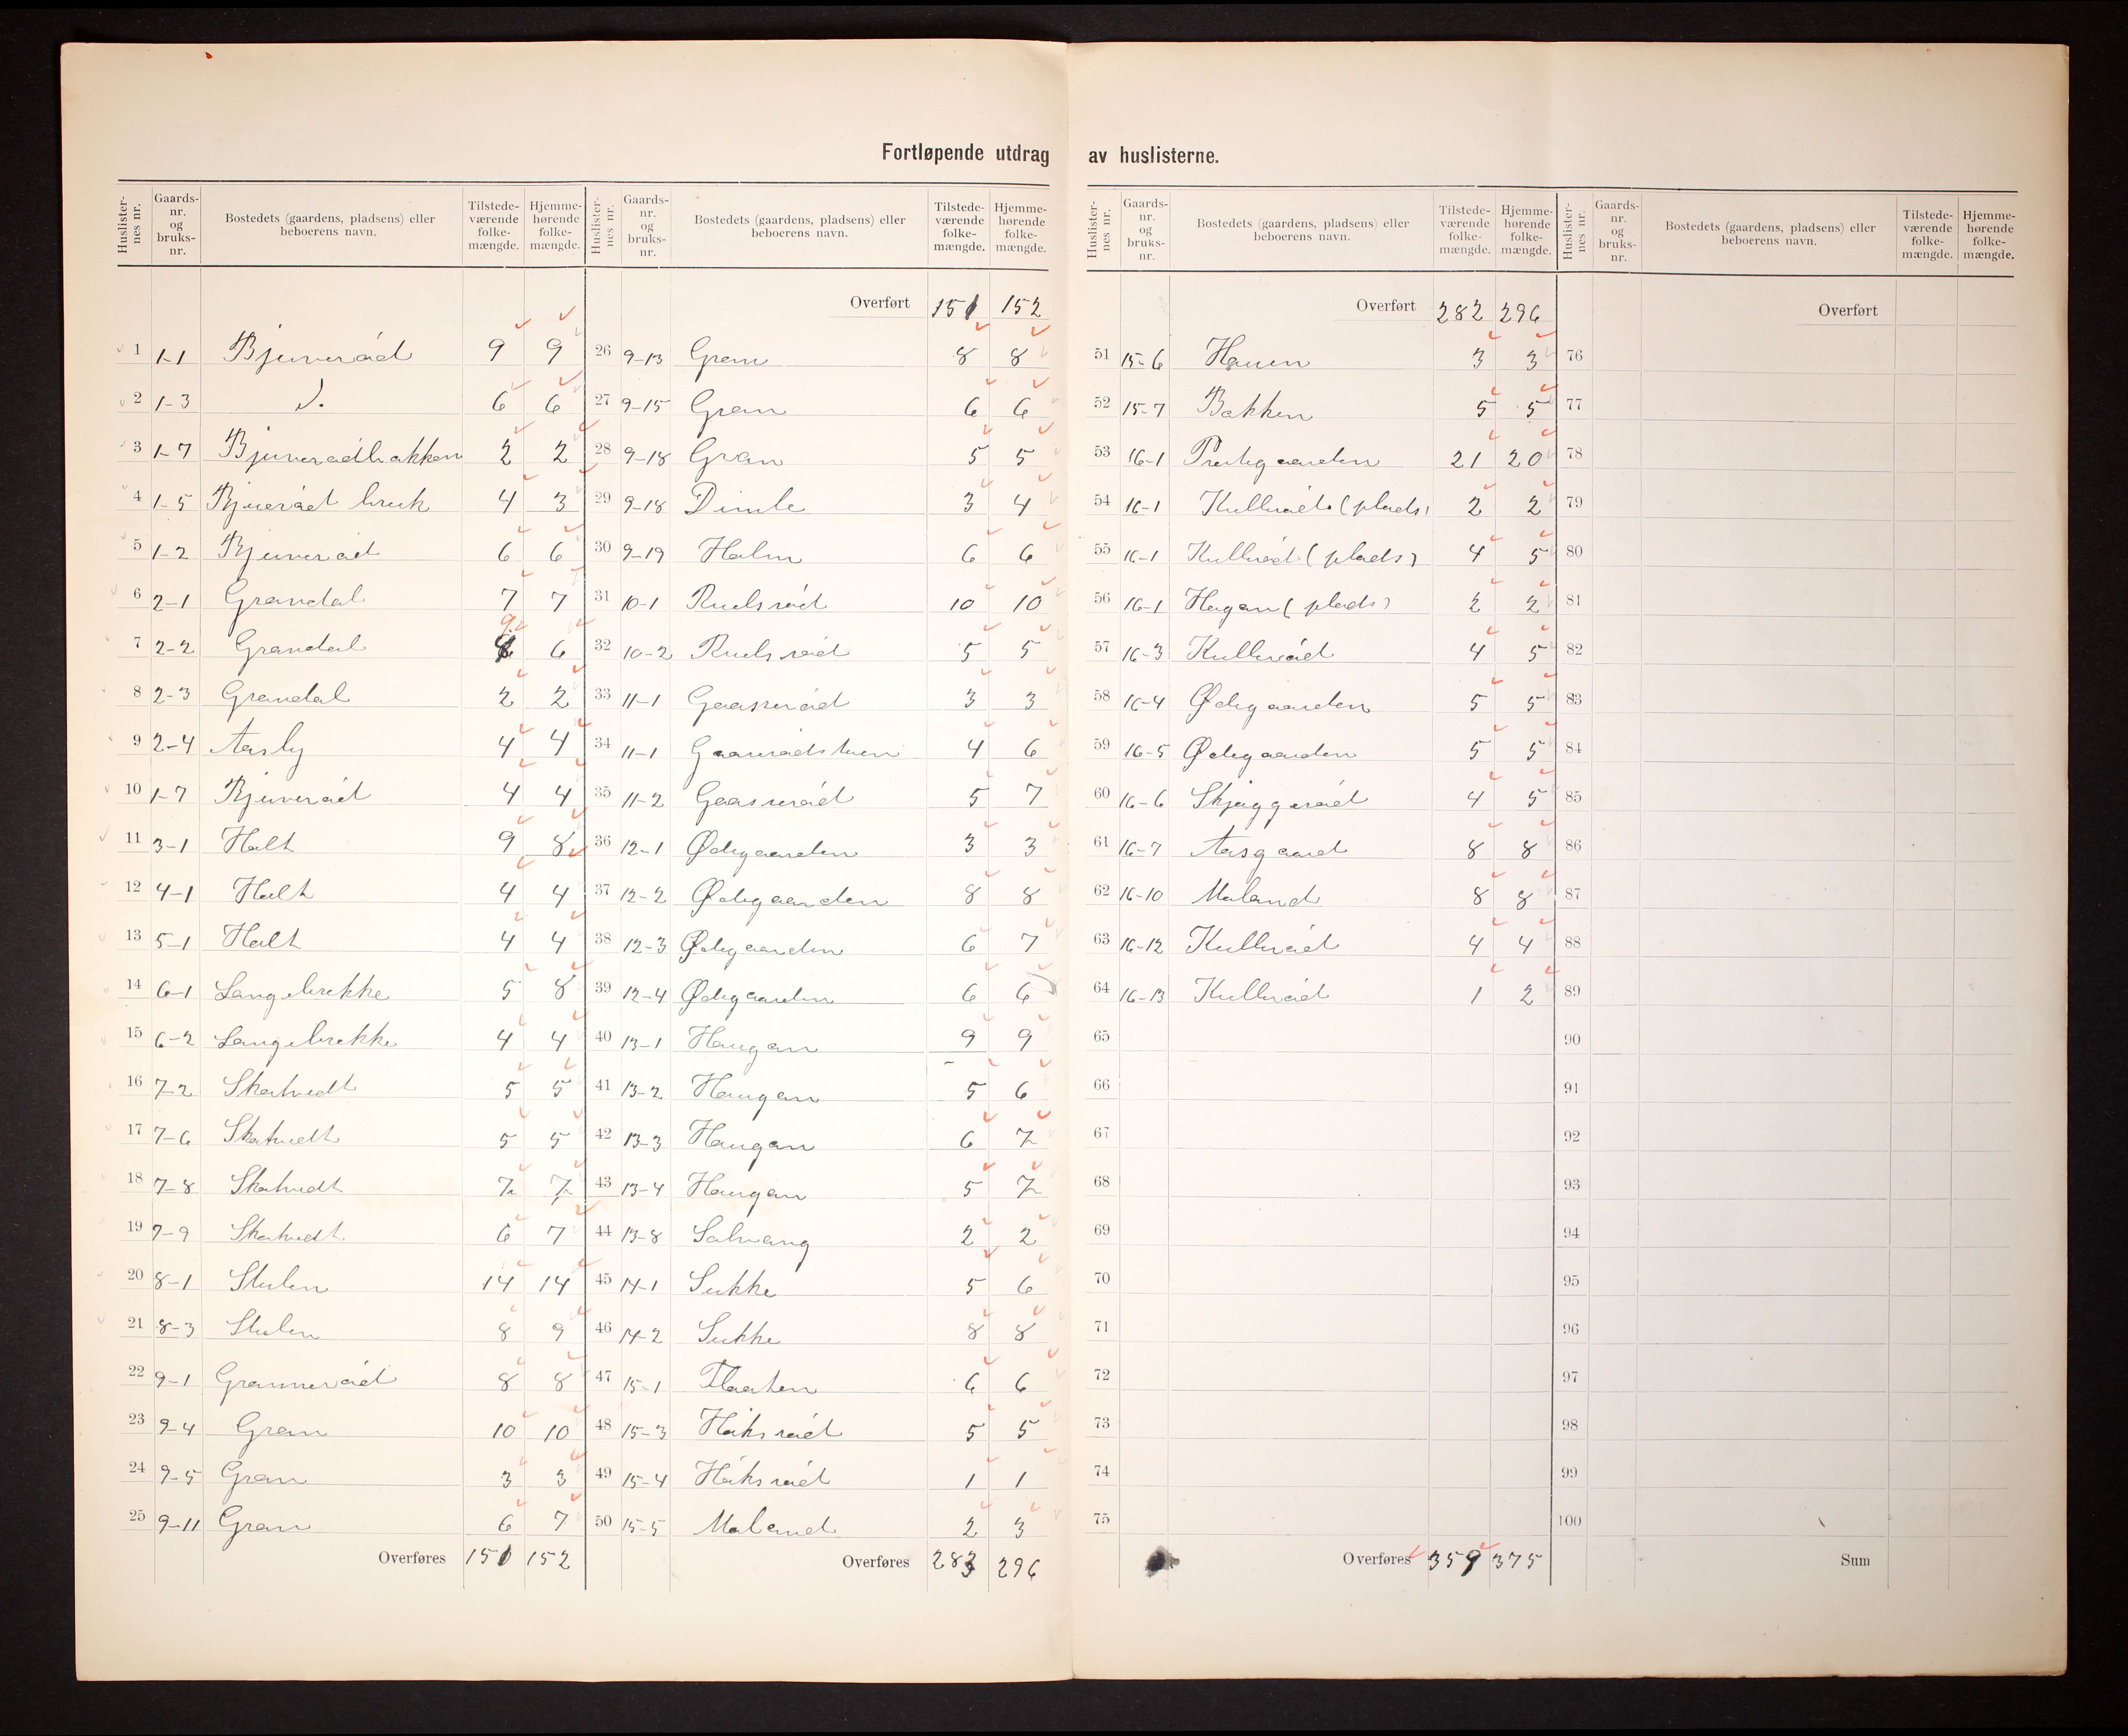 Fortløpende utdrag av huslisterne.
Huslister-nes nr. Gaards-nr. og bruks-nr. Bostedets (gaardens, pladsens) eller beboerens navn. Tilstede-værende folke-mængde. Hjemme-hørende folke-mængde.
1 1-1 Bjuneröd 9 9
2 1-3 D. 6 6
3 1-7 Bjunerödbakken 2 2
4 1-5 Bjueröd bruk 4 3
5 1-2 Bjuneröd 6 6
6 2-1 Grandal 7 7
7 2-2 Grandal 9 6
8 2-3 Grandal 2 2
9 2-4 Aasly 4 4
10 1-7 Bjuneröd 4 4
11 3-1 Holt 9 8
12 4-1 Holt 4 4
13 5-1 Holt 4 4
14 6-1 Langebrekke 5 8
15 6-2 Langebrekke 4 4
16 7-2 Skatvedt 5 5
17 7-6 Skatvedt 5 5
18 7-8 Skatvedt 7 7
19 7-9 Skatvedt 6 7
20 8-1 Stulen 14 14
21 8-3 Stulen 8 9
22 9-1 Granneröd 8 8
23 9-4 Gran 10 10
24 9-5 Gran 3 3
25 9-11 Gran 6 7
Overføres 151 152
Huslister-nes nr. Gaards-nr. og bruks-nr. Bostedets (gaardens, pladsens) eller beboerens navn. Tilstede-værende folke-mængde. Hjemme-hørende folke-mængde.
Overført 151 152
26 9-13 Gran 8 8
27 9-15 Gran 6 6
28 9-18 Gran 5 5
29 9-18 Dimle 3 4
30 9-19 Holm 6 6
31 10-1 Ruelsröd 10 10
32 10-2 Ruelsröd 5 5
33 11-1 Gaaseröd 3 3
34 11-1 4 6
35 11-2 Gaaseröd 5 7
36 12-1 Ødegaarden 3 3
37 12-2 Ødegaarden 8 8
38 12-3 Ødegaarden 6 7
39 12-4 Ødegaarden 6 6
40 13-1 Haugan 9 9
41 13-2 Haugan 5 6
42 13-3 Haugan 6 7
43 13-4 Haugan 5 7
44 13-8 Solvang 2 2
45 14-1 Sukke 5 6
46 14-2 Sukke 8 8
47 15-1 Flaaten 6 6
48 15-3 Håksröd 5 5
49 15-4 Håksröd 1 1
50 15-5 Moland 2 3
Overføres 282 296
Huslister-nes nr. Gaards-nr. og bruks-nr. Bostedets (gaardens, pladsens) eller beboerens navn. Tilstede-værende folke-mængde. Hjemme-hørende folke-mængde.
Overført 282 296
51 15-6 Hauen 3 3
52 15-7 Bakken 5 5
53 16-1 Prestegaarden 21 20
54 16-1 Kulleröd (plads) 2 2
55 16-1 Kulleröd (plads) 4 5
56 16-1 Hagan (plads) 2 2
57 16-3 Kulleröd 4 5
58 16-4 Ødegaarden 5 5
59 16-5 Ødegaarden 5 5
60 16-6 Skjæggeröd 4 5
61 16-7 Aasgaard 8 8
62 16-10 Moland 8 8
63 16-12 Kulleröd 4 4
64 16-13 Kulleröd 1 2
65
66
67
68
69
70
71
72
73
74
75
Overføres 359 375
Huslister-nes nr. Gaards-nr. og bruks-nr. Bostedets (gaardens, pladsens) eller beboerens navn. Tilstede-værende folke-mængde. Hjemme-hørende folke-mængde.
Overført
76
77
78
79
80
81
82
83
84
85
86
87
88
89
90
91
92
93
94
95
96
97
98
99
100
Sum